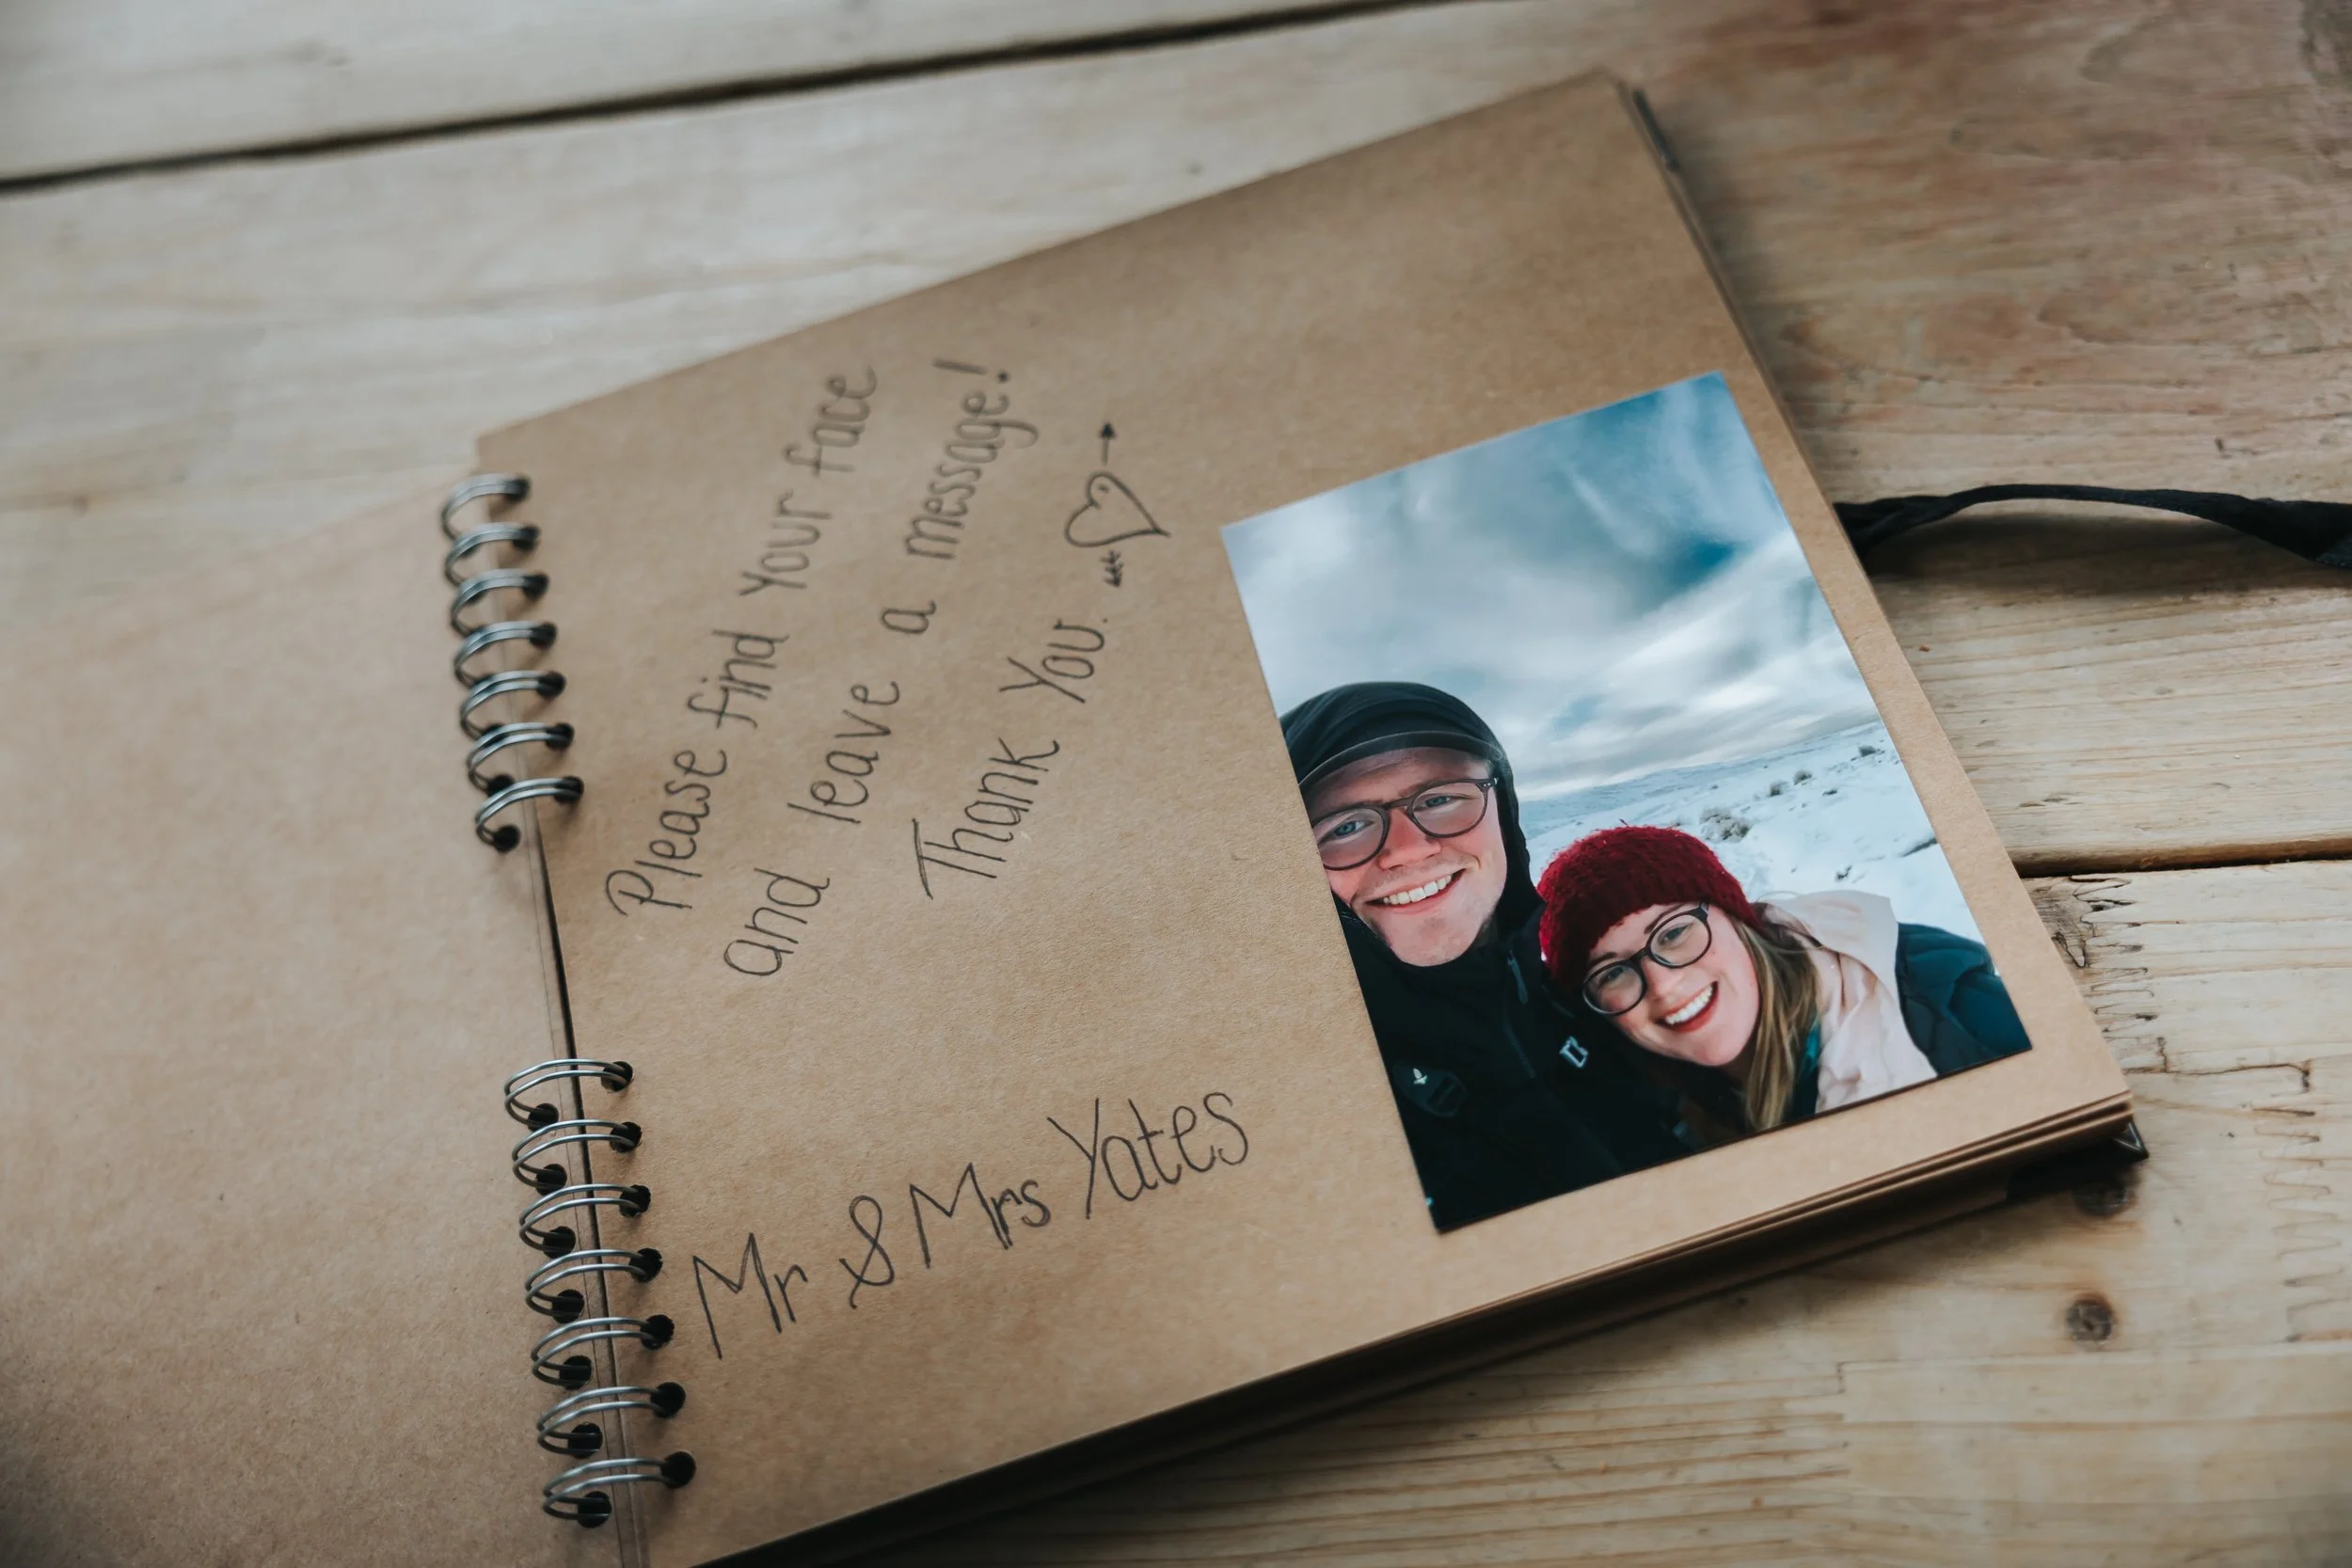 Please find your face
and leave a message!
Thank You.
Mr & Mrs Yates